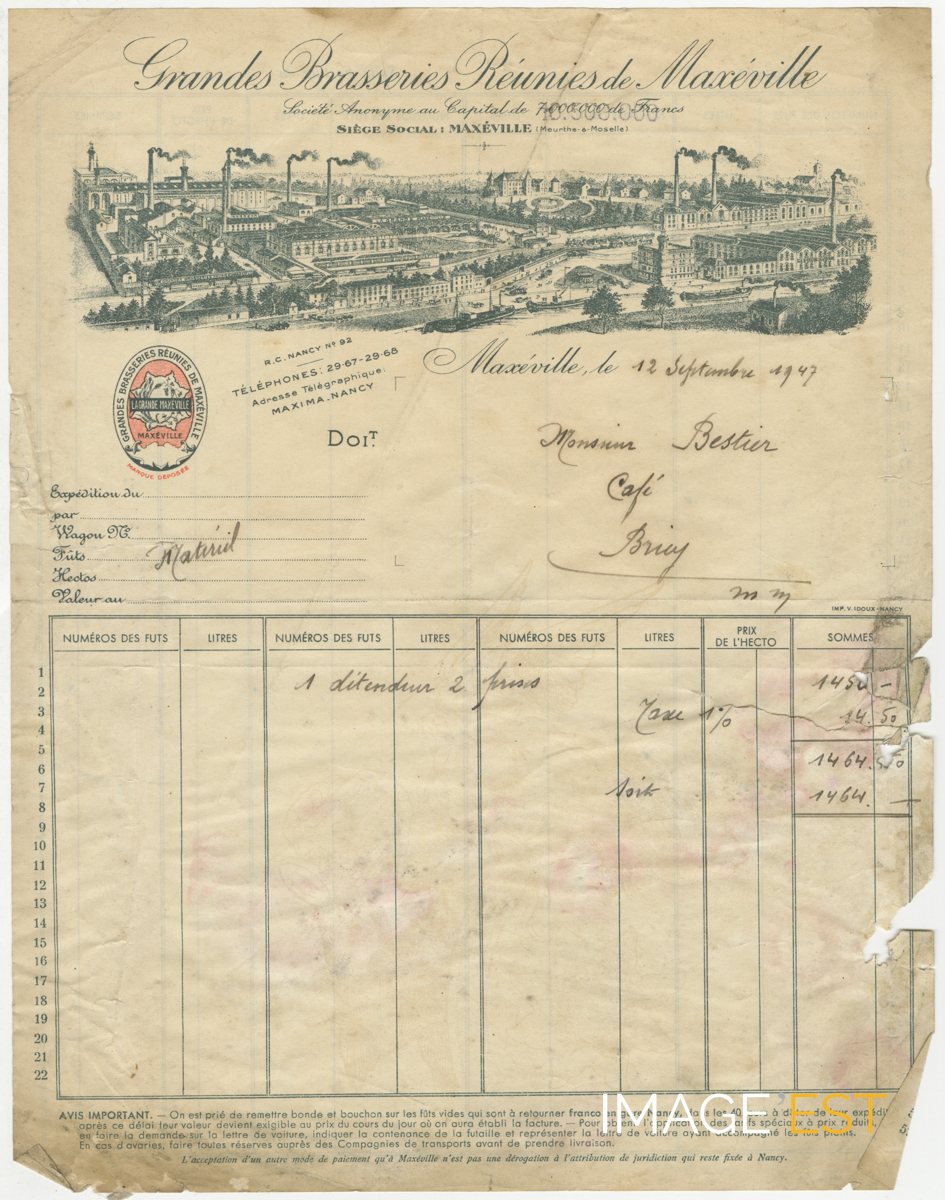 Grandes Brasseries Réunies de Maxéville
Société Anonyme au Capital de 7.000.000 de Francs
10.500.000
SIÈGE SOCIAL : MAXÉVILLE (Meurthe-&-Moselle)
R.C. NANCY Nº 92
TÉLÉPHONES: 29-67-29-68
Adresse Télégraphique:
MAXIMA-NANCY
GRANDES BRASSERIES RÉUNIES DE MAXÉVILLE
LA GRANDE MAXÉVILLE
MAXÉVILLE
MARQUE DÉPOSÉE
Maxéville, le 12 Septembre 1947
DOIT.
Monsieur Bestier
Café
Briey
m m
Expédition du
par
Wagon Nº
Fûts
Matériel
Hectos
Valeur au
IMP. V. IDOUX-NANCY
NUMÉROS DES FUTS LITRES NUMÉROS DES FUTS LITRES NUMÉROS DES FUTS LITRES PRIX DE L'HECTO SOMMES
1
2 1 détendeur 2 prises 1450 -
3 Taxe 1% 14.50
4
5
6 1464.50
7
8 soit 1464. —
9
10
11
12
13
14
15
16
17
18
19
20
21
22
AVIS IMPORTANT. — On est prié de remettre bonde et bouchon sur les fûts vides qui sont à retourner franco en gare Nancy, dans les 40 jours à dater de leur expédi
après ce délai leur valeur devient exigible au prix du cours du jour où on aura établi la facture. — Pour obtenir l'application des tarifs spéciaux à prix réduit,
en faire la demande sur la lettre de voiture, indiquer la contenance de la futaille et représenter la lettre de voiture ayant accompagné les fûts pleins.
En cas d'avaries, faire toutes réserves auprès des Compagnies de transports avant de prendre livraison.
L'acceptation d'un autre mode de paiement qu'à Maxéville n'est pas une dérogation à l'attribution de juridiction qui reste fixée à Nancy.
IMAGE EST